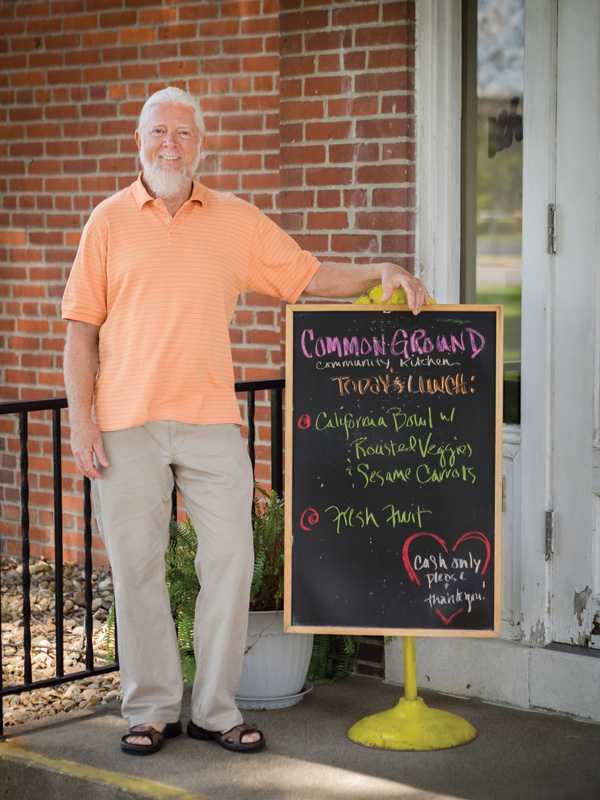 COMMON GROUND
community kitchen
TODAY'S LUNCH:
California Bowl w/
Roasted Veggies
& Sesame Carrots
Fresh Fruit
cash only
please
+
thank you!